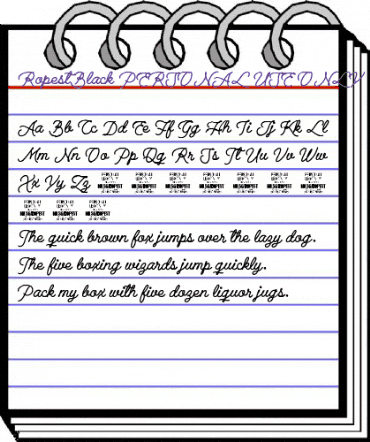 RopestBlack PERSONAL USE ONLY
Aa Bb Cc Dd Ee Ff Gg Hh Ii Jj Kk Ll
Mm Nn Oo Pp Qq Rr Ss Tt Uu Vv Ww
Xx Yy Zz
The quick brown fox jumps over the lazy dog.
The five boxing wizards jump quickly.
Pack my box with five dozen liquor jugs.